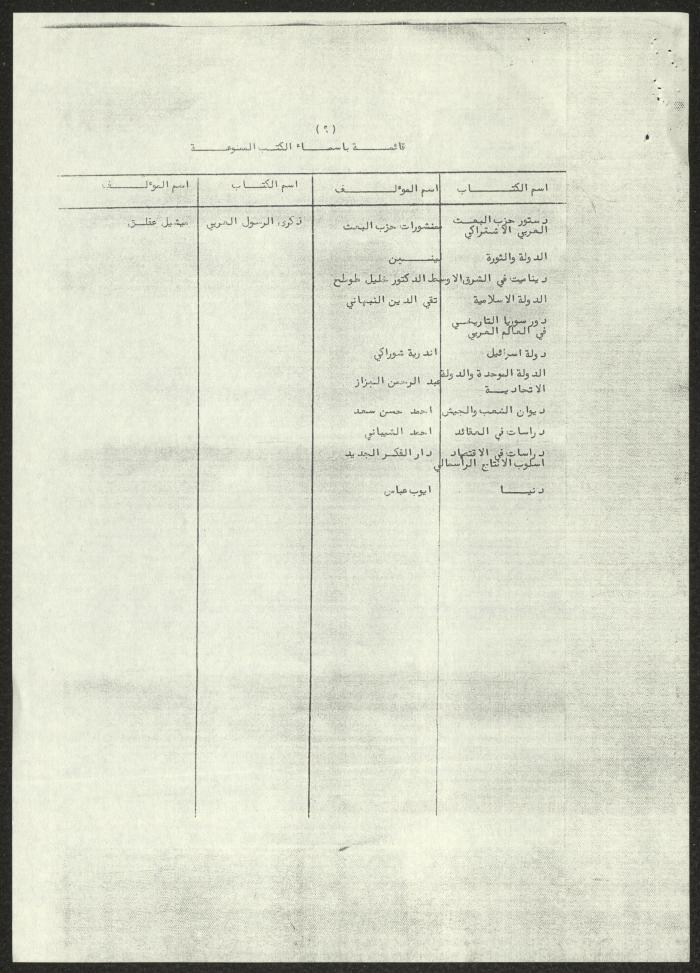 (٩)
قائمة باسماء الكتب الممنوعة
اسم الكتاب اسم المؤلف اسم الكتاب اسم المؤلف
دستور حزب البعث منشورات حزب البعث ذكرى الرسول العربي ميشيل عفلق
العربي الاشتراكي
الدولة والثورة لينين
ديناميت في الشرق الاوسط الدكتور خليل طوطح
الدولة الاسلامية تقي الدين النبهاني
دور سوريا التاريخي
في العالم العربي
دولة اسرائيل اندرية شوراكي
الدولة الموحدة والدولة عبد الرحمن البزاز
الاتحادية
ديوان الشعب والجيش احمد حسن سعد
دراسات في العقائد احمد الشيباني
دراسات في الاقتصاد دار الفكر الجديد
اسلوب الانتاج الرأسمالي
دنيا ايوب عباس